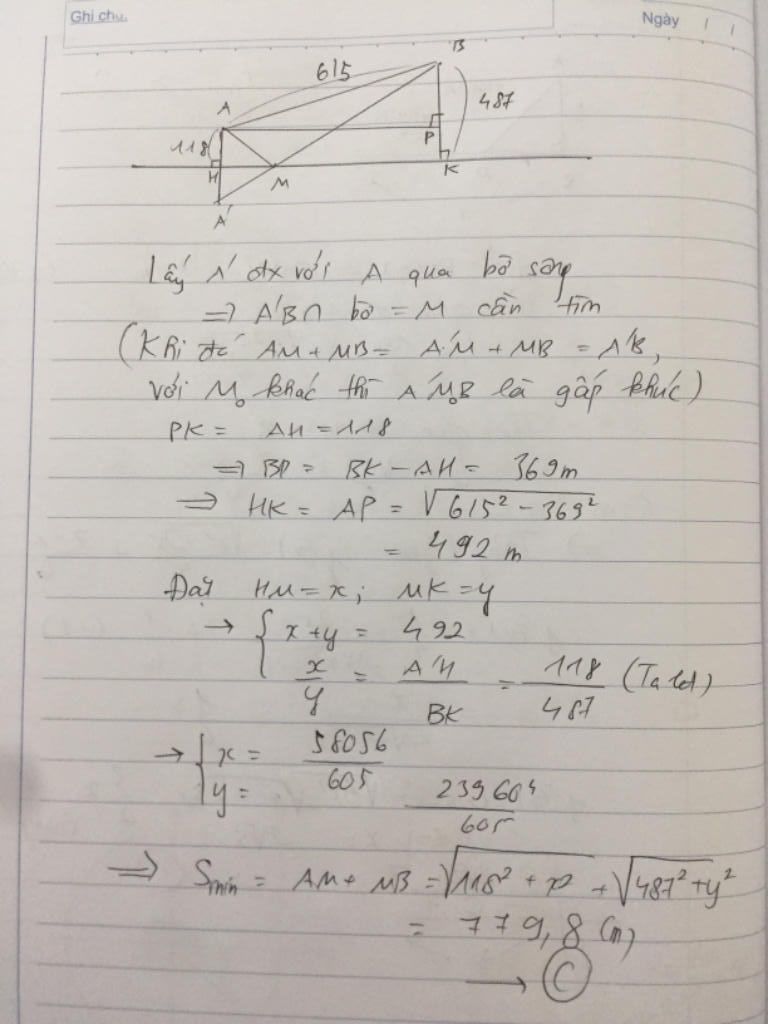 Ghi chú.
Ngày / /
B
615
487
A
P
118
H
M
K
A'
Lấy A' đx với A qua bờ sông
=> A'B ∩ bờ = M cần tìm
(Khi đó AM + MB = A'M + MB = A'B,
với M₀ khác thì A'M₀B là gấp khúc)
PK = AH = 118
=> BP = BK - AH = 369m
=> HK = AP = √(615² - 369²)
= 492 m
Đặt HM = x; MK = y
→ { x + y = 492
x/y = A'H/BK = 118/487 (Ta lét)
→ { x = 58056/605
y = 239604/605
=> Smin = AM + MB = √(118² + x²) + √(487² + y²)
= 779,8 (m)
→ C